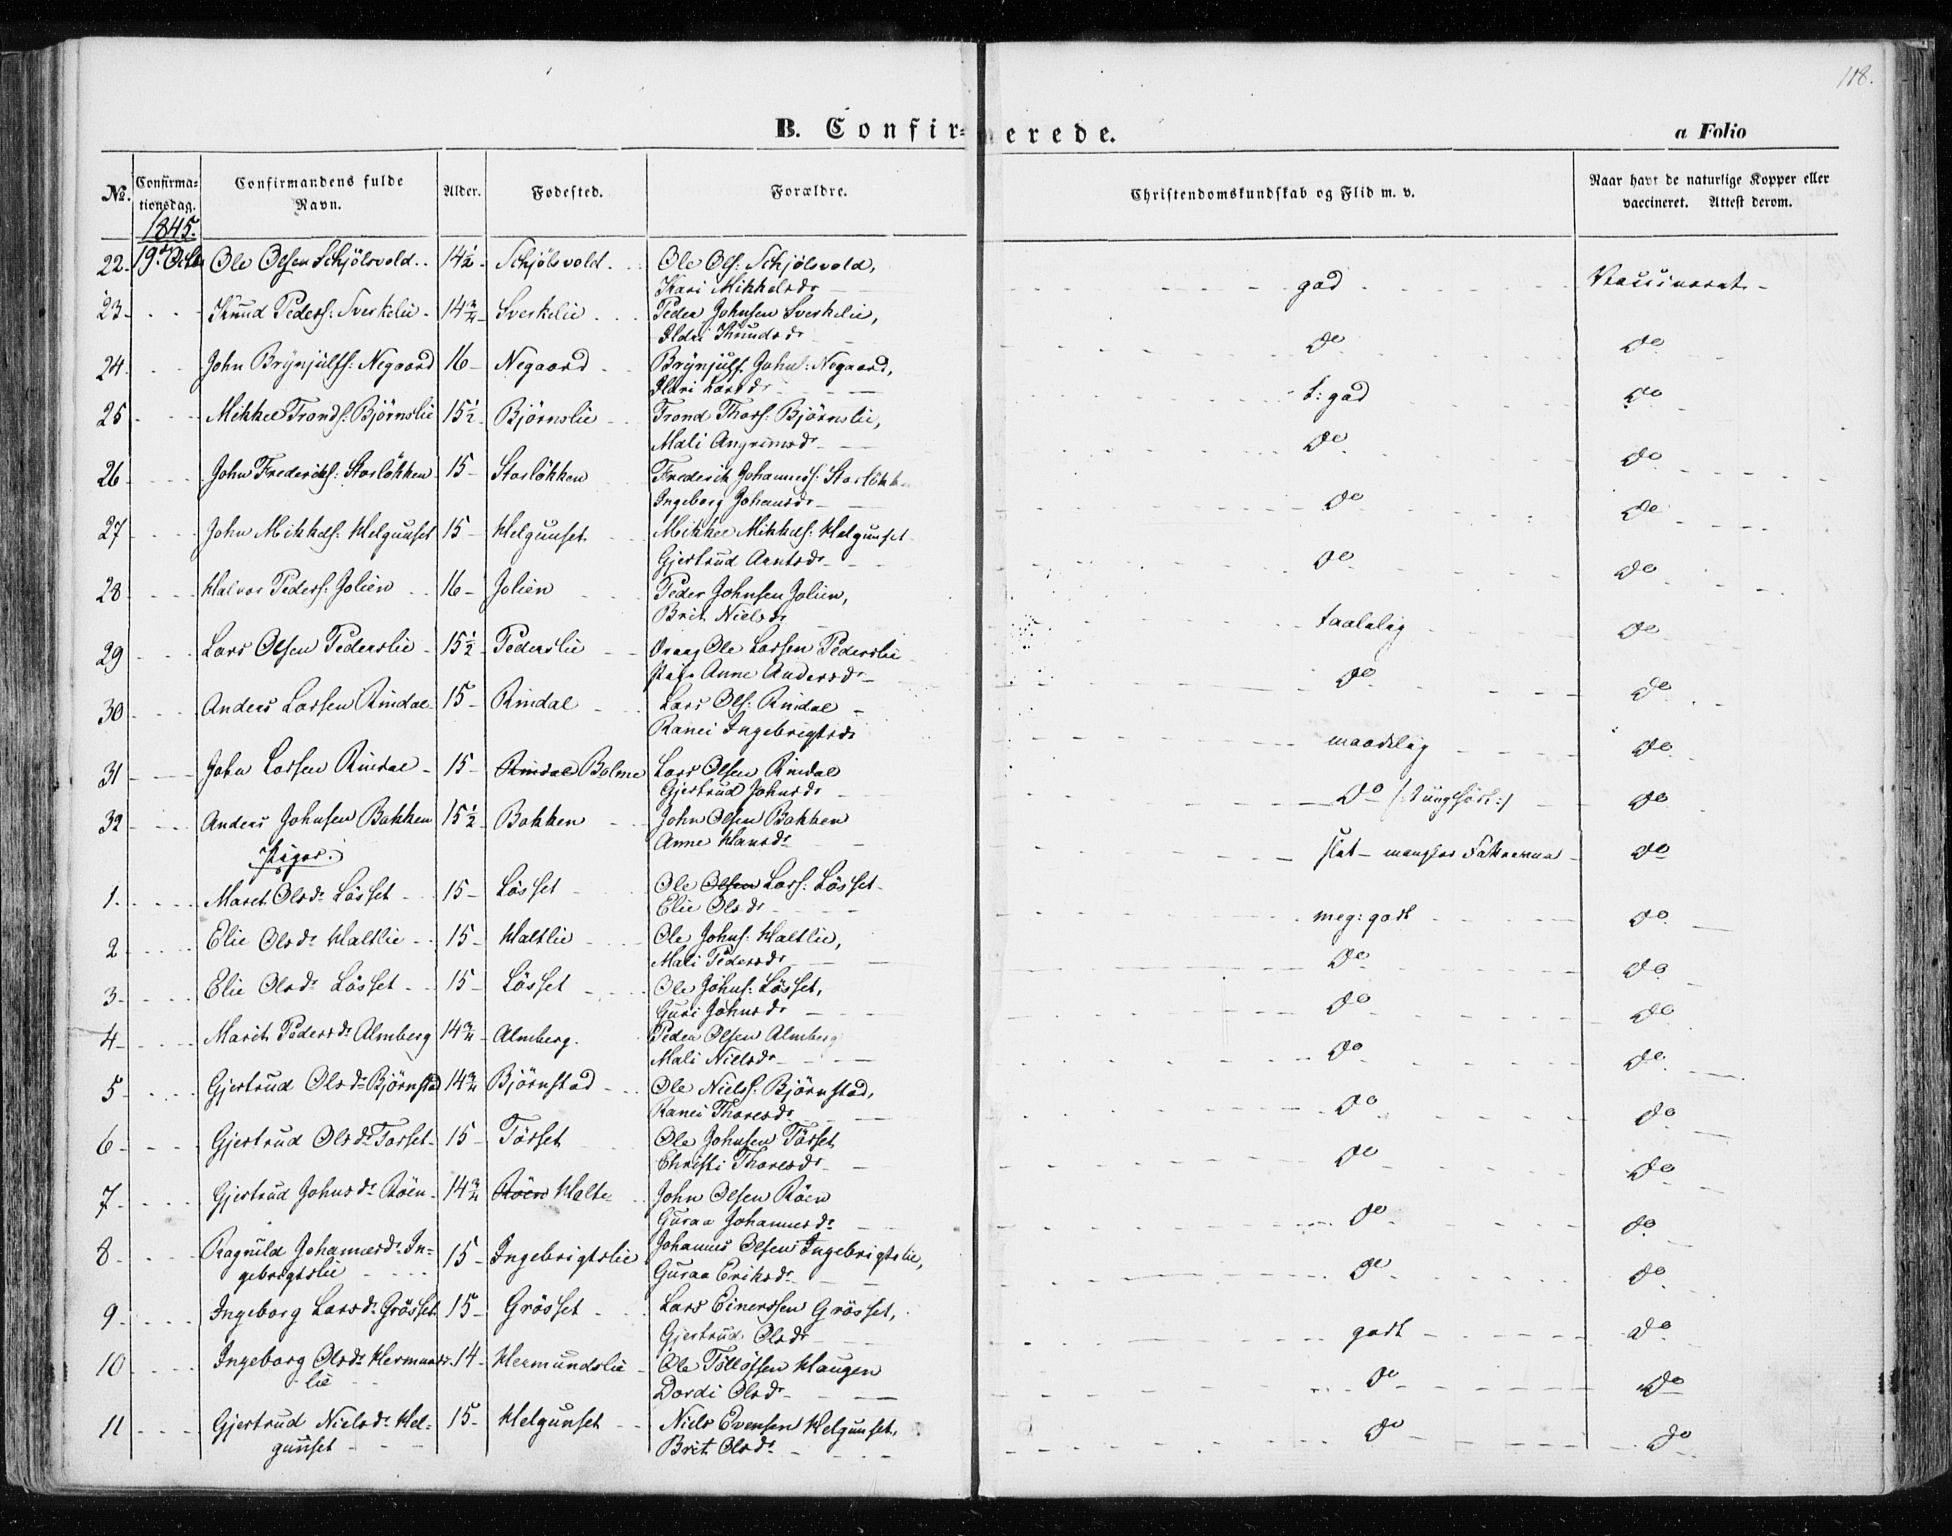 118.
B. Confirmerede.
a Folio
No. Confirmationsdag. Confirmandens fulde Navn. Alder. Fødested. Forældre. Christendomskundskab og Flid m. v. Naar havt de naturlige Kopper eller vaccineret. Attest derom.
1845.
22. 19de Octbr Ole Olsen Schjölsvold 14½ Schjölsvold Ole Ols: Schjölsvold, god Vaccineret
Kari Mikkelsdr
23 Knud Peders: Sverkelie 14¾ Sverkelie Peder Johnsen Sverkelie, do do
Ildri Knudsdr
24 John Brynjulfs: Negaard 16 Negaard Brynjulf Johns: Negaard, t: god do
Ildri Larsdr
25 Mikkel Tronds: Björnslie 15½ Björnslie Trond Thors: Björnslie, do do
Mali Angrimsdr
26 John Frederiks: Storlökken 15 Storlökken Frederik Johannes: Storlökk do do
Ingeborg Johansdr
27 John Mikkels: Helgunset 15 Helgunset Mikkel Mikkels: Helgunset do do
Gjertrud Arntsdr
28 Halvor Peders: Jolien 16 Jolien Peder Johnsen Jolien, taalelig do
Brit Nielsdr
29 Lars Olsen Pederslie 15½ Pederslie Ole Larsen Pederslie do do
Pige Anne Andersdr
30 Anders Larsen Rindal 15 Rindal Lars Ols: Rindal maadelig do
Ranei Ingebrigtsdr
31 John Larsen Rindal 15 Rindal Bolme Lars Olsen Rindal do /: tunghört :/ do
Gjertrud Johnsdr
32 Anders Johnsen Bakken 15½ Bakken John Olsen Bakken slet do
Anne Hansdr
Piger.
1. Marit Olsdr Lösset 15 Lösset Ole Olsen Lars: Lösset meg: godt do
Elie Olsdr
2 Elie Olsdr Haltlie 15 Haltlie Ole Johns: Haltlie, do do
Mali Pedersdr
3 Elie Olsdr Lösset 15 Lösset Ole Johns: Lösset, do do
Guri Johnsdr
4 Marit Pedersdr Almberg 14¾ Almberg. Peder Olsen Almberg do do
Mali Nielsdr
5 Gjertrud Olsdr Björnstad 14¾ Björnstad Ole Niels: Björnstad, do do
Ranei Thoresdr
6 Gjertrud Olsdr Torset 15 Törset Ole Johnsen Törset do do
Christi Thoresdr
7 Gjertrud Johnsdr Röen 14¾ Röen Holte John Olsen Röen do do
Guraa Johannesdr
8 Ragnild Johannesdr In= 15 Ingebrigtslie Johannes Olsen Ingebrigtslie, do do
gebrigtslie Guraa Eriksdr
9 Ingeborg Larsdr Grösset 15 Grösset Lars Einersen Grösset, godt do
Gjertrud Olsdr
10 Ingeborg Olsdr Hermunds- 14 Hermundslie Ole Tollofsen Haugen do do
lie Dordi Olsdr
11 Gjertrud Nielsdr Hel= 15 Helgunset Niels Evensen Helgunset, do do
gunset Brit Olsdr